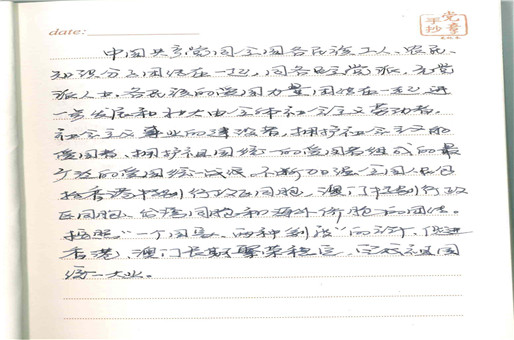 date:
手抄党章
中国共产党同全国各民族工人、农民、
知识分子团结在一起，同各民主党派、无党
派人士、各民族的爱国力量团结在一起，进
一步发展和壮大由全体社会主义劳动者、
社会主义事业的建设者、拥护社会主义的
爱国者、拥护祖国统一的爱国者组成的最
广泛的爱国统一战线。不断加强全国人民包
括香港特别行政区同胞、澳门特别行政
区同胞、台湾同胞和海外侨胞的团结。
按照“一个国家、两种制度”的方针，促进
香港、澳门长期繁荣稳定，完成祖国
统一大业。